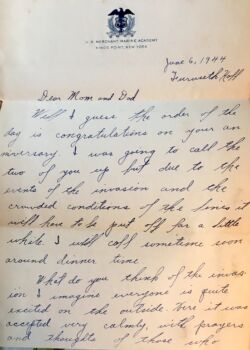 U.S. MERCHANT MARINE ACADEMY
KINGS POINT, NEW YORK
June 6, 1944
Furuseth Hall
Dear Mom and Dad
Well I guess the order of the
day is congratulations on your an
niversary. I was going to call the
two of you up but due to the
events of the invasion and the
crowded conditions of the lines it
will have to be put off for a little
while. I will call sometime soon
around dinner time
What do you think of the invas-
ion I imagine everyone is quite
excited on the outside. Here it was
accepted very calmly, with prayers
and thoughts of those who